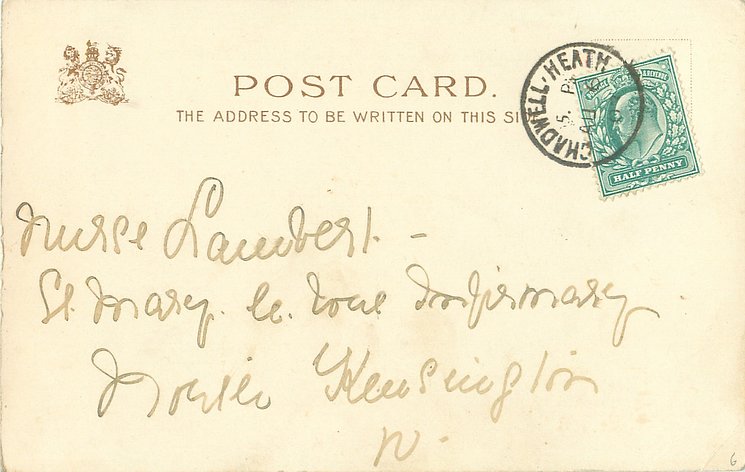 POST CARD.
THE ADDRESS TO BE WRITTEN ON THIS SI
CHADWELL-HEATH
5. P
AU 6
REVENUE
HALF PENNY
Nurse Lambert -
St. Mary. le. bone Infirmary
North Kensington
W.
6